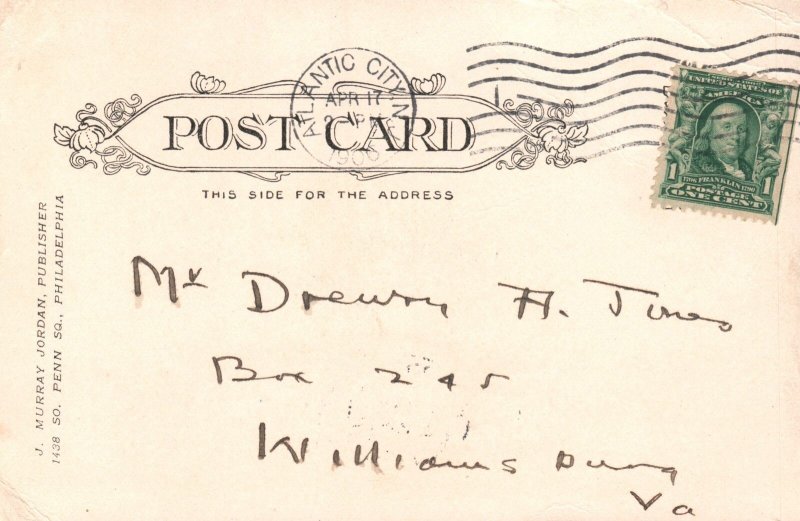 ATLANTIC CITY N.J.
APR 17
1906
UNITED STATES OF
AMERICA
1 1706 FRANKLIN 1790 1
POSTAGE
ONE CENT
POST CARD
THIS SIDE FOR THE ADDRESS
J. MURRAY JORDAN, PUBLISHER
1438 SO. PENN SQ., PHILADELPHIA
Mr Drewry A. Jones
Box 245
Williamsburg
Va